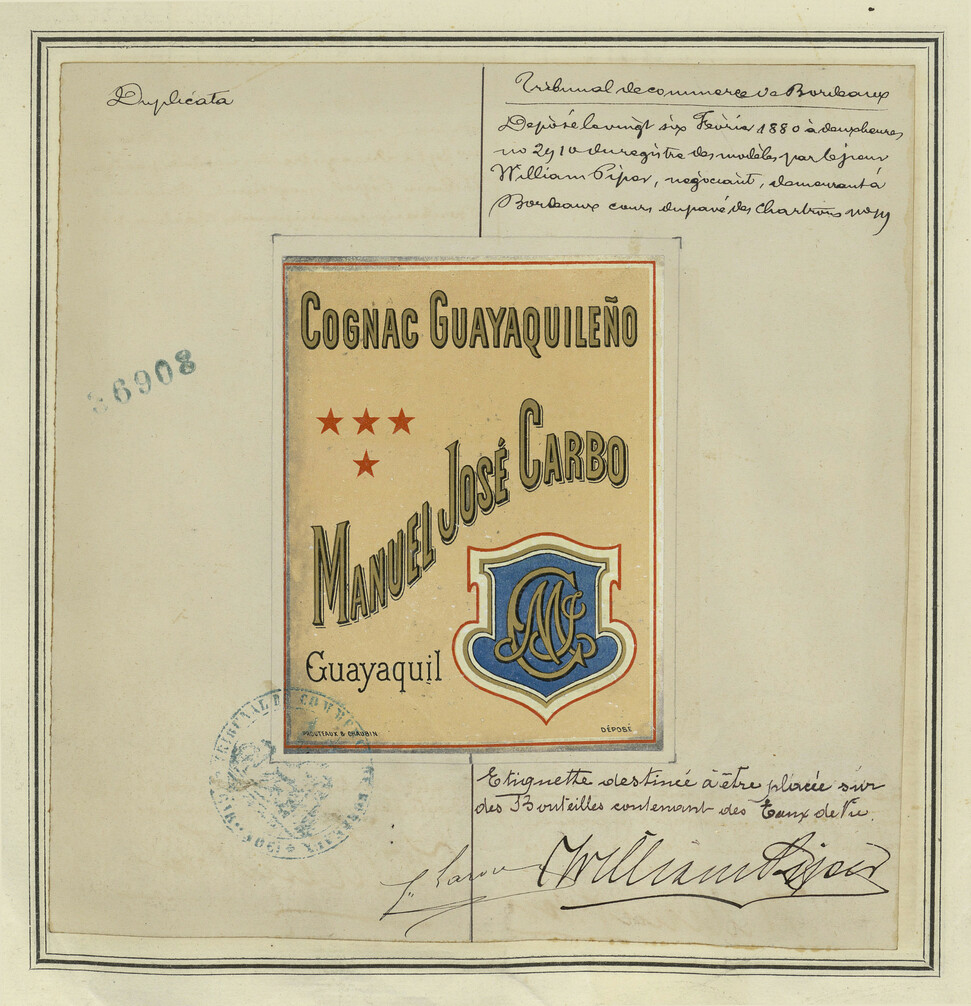 Duplicata
Tribunal de commerce de Bordeaux
Déposé le vingt six Février 1880 à deux heures
no 2910 du registre des modèles par le sieur
William Piper, négociant, demeurant à
Bordeaux cours du pavé des Chartrons no
36908
COGNAC GUAYAQUILEÑO
MANUEL JOSÉ CARBO
Guayaquil
PROUTEAUX & CHAUBIN
DÉPOSÉ
TRIBUNAL DE COMMERCE
Etiquette destinée à être placée sur
des Bouteilles contenant des Eaux de Vie.
William Piper